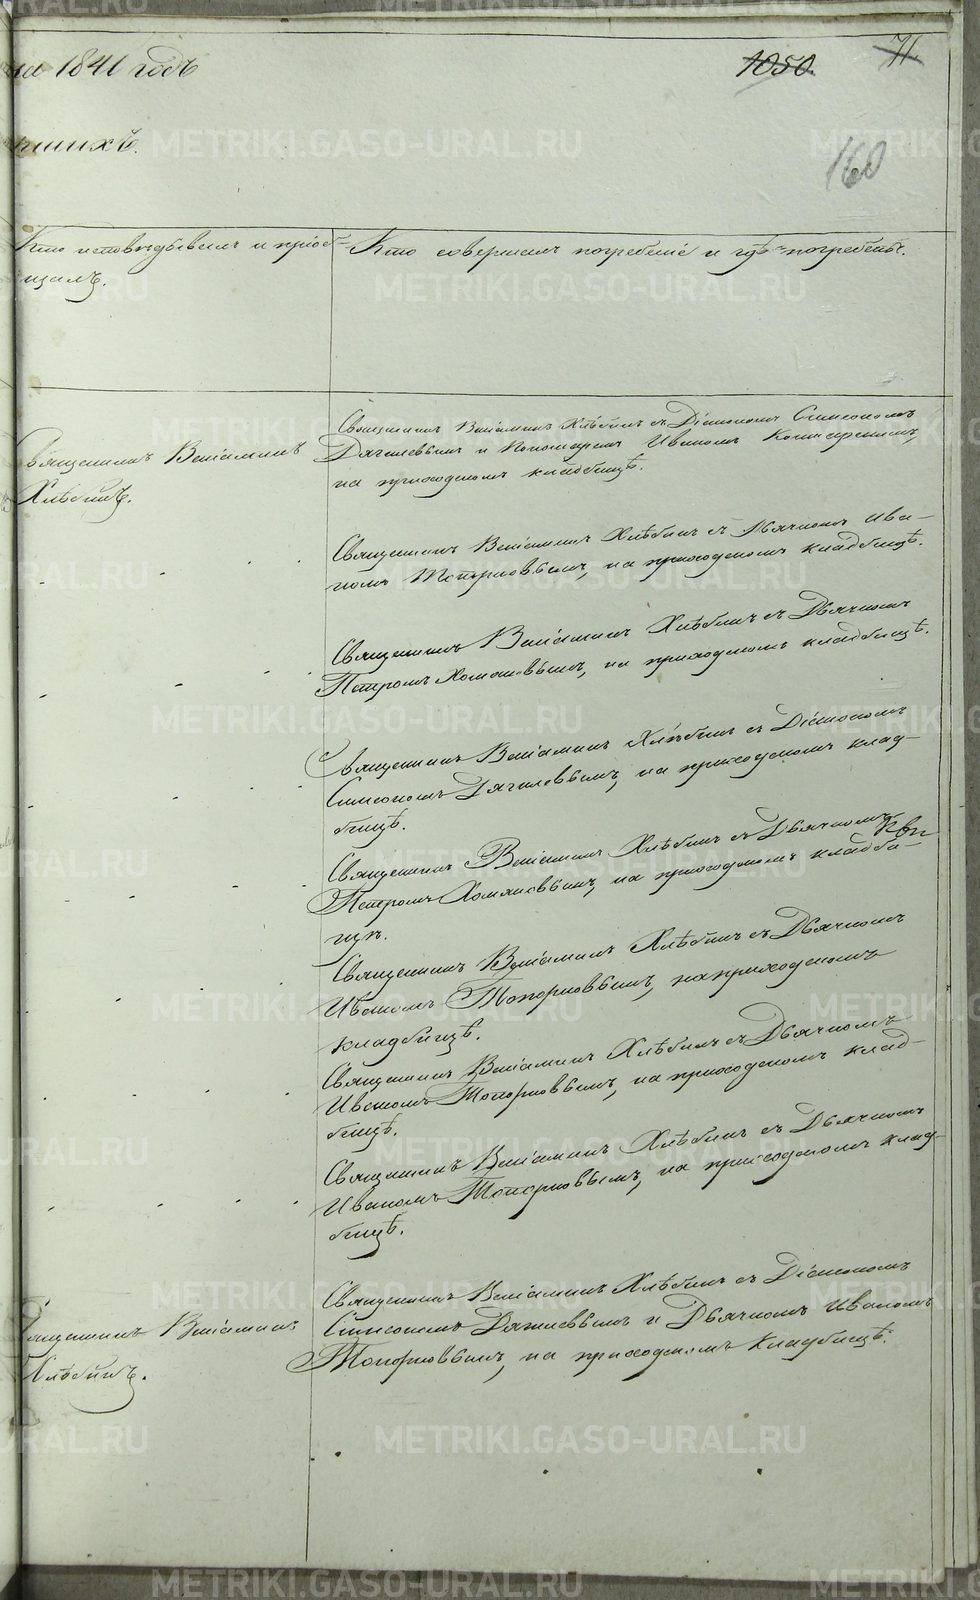 на 1841 годъ
1050.
71.
160
шихъ.
Кто исповѣдывалъ и пріоб-
щилъ.
Кто совершалъ погребеніе и гдѣ погребены.
Священникъ Веніаминъ
Хлѣбинъ.
Священникъ Веніаминъ Хлѣбинъ съ Діакономъ Симеономъ
Дягилевымъ и Пономаремъ Иваномъ
на приходскомъ кладбищѣ.
Священникъ Веніаминъ Хлѣбинъ съ Дьячкомъ Ива-
номъ Топорковымъ, на приходскомъ кладбищѣ.
Священникъ Веніаминъ Хлѣбинъ съ Дьячкомъ
Петромъ Хомяковымъ, на приходскомъ кладбищѣ.
Священникъ Веніаминъ Хлѣбинъ съ Діакономъ
Симеономъ Дягилевымъ, на приходскомъ клад-
бищѣ.
Священникъ Веніаминъ Хлѣбинъ съ Дьячкомъ
Петромъ Хомяковымъ, на приходскомъ кладби-
щѣ.
Священникъ Веніаминъ Хлѣбинъ съ Дьячкомъ
Иваномъ Топорковымъ, на приходскомъ
кладбищѣ.
Священникъ Веніаминъ Хлѣбинъ съ Дьячкомъ
Иваномъ Топорковымъ, на приходскомъ клад-
бищѣ.
Священникъ Веніаминъ Хлѣбинъ съ Дьячкомъ
Иваномъ Топорковымъ, на приходскомъ клад-
бищѣ.
Священникъ Веніаминъ
Хлѣбинъ.
Священникъ Веніаминъ Хлѣбинъ съ Діакономъ
Симеономъ Дягилевымъ и Дьячкомъ Иваномъ
Топорковымъ, на приходскомъ кладбищѣ.
METRIKI.GASO-URAL.RU